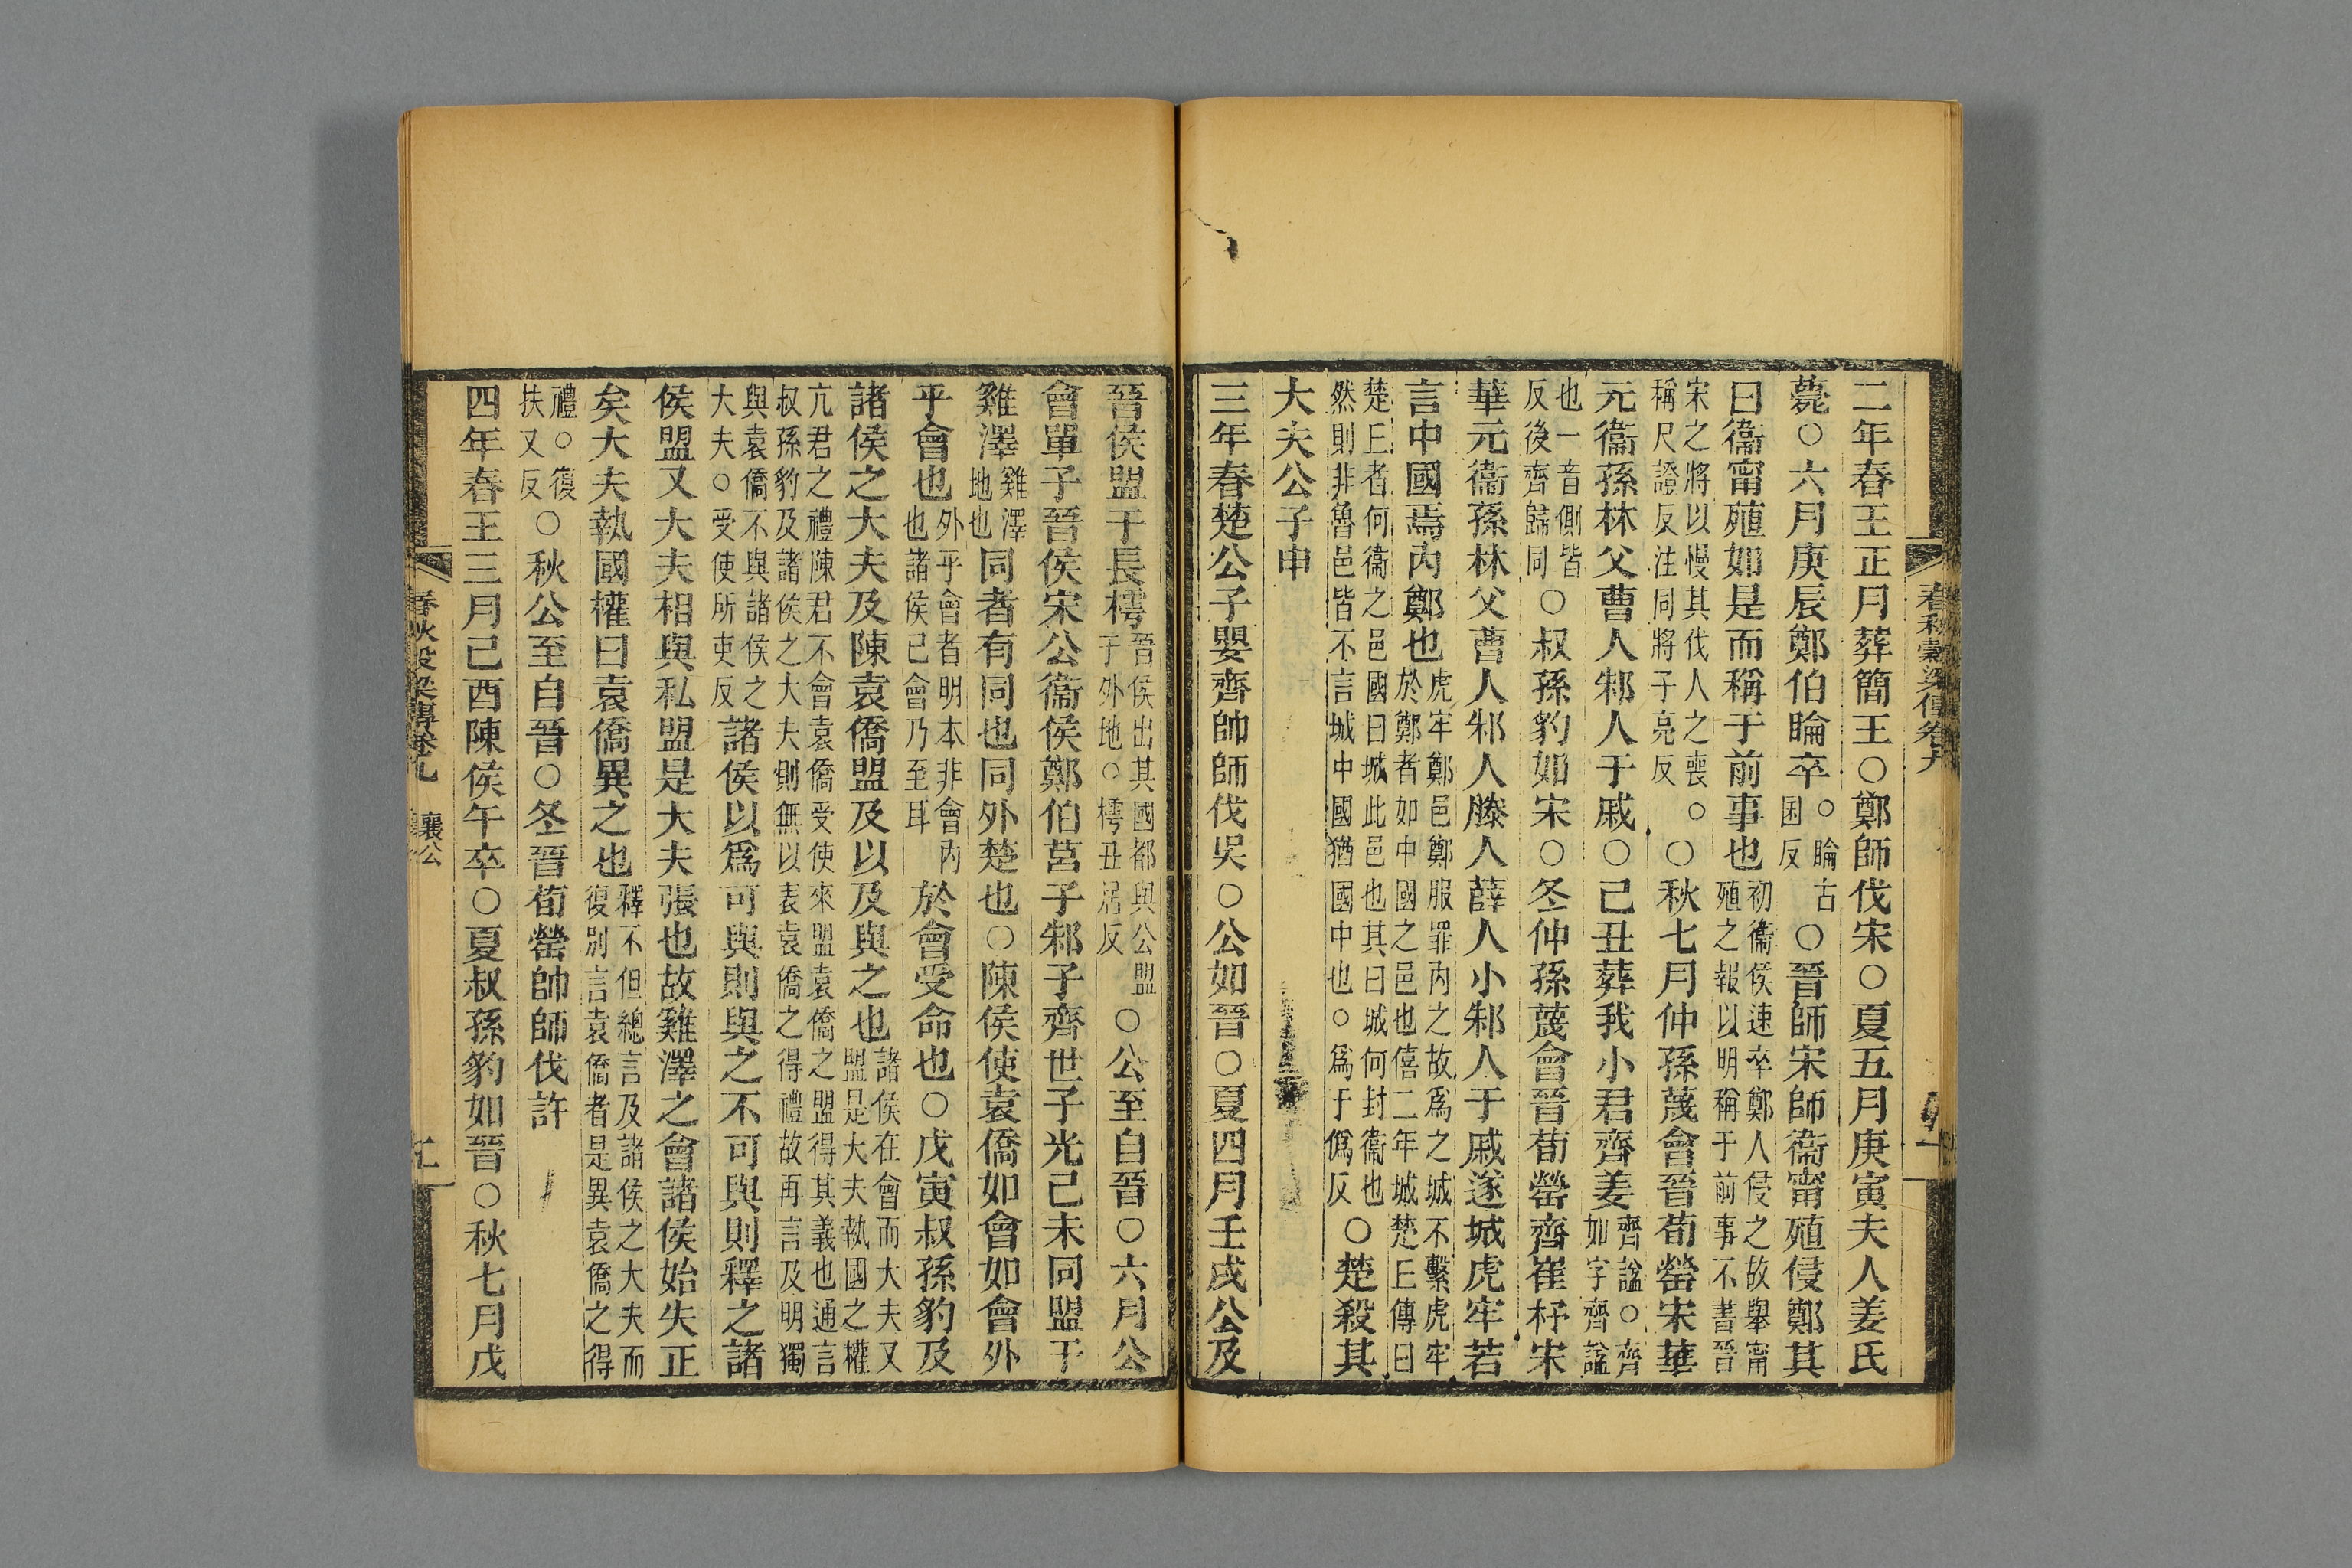 二年春王正月葬簡王○鄭師伐宋○夏五月庚寅夫人姜氏
薨○六月庚辰鄭伯睔卒○睔古困反○晉師宋師衞甯殖侵鄭其
曰衞甯殖如是而稱于前事也初衞侯速卒鄭人侵之故舉甯殖之報以明稱于前事不書晉
宋之將以慢其伐人之喪○稱尺證反注同將子亮反○秋七月仲孫蔑會晉荀罃宋華
元衞孫林父曹人邾人于戚○己丑葬我小君齊姜齊諡○齊如字齊諡
也一音側皆反後齊歸同○叔孫豹如宋○冬仲孫蔑會晉荀罃齊崔杼宋
華元衞孫林父曹人邾人滕人薛人小邾人于戚遂城虎牢若
言中國焉內鄭也虎牢鄭邑鄭服罪內之故爲之城不繫虎牢於鄭者如中國之邑也僖二年城楚丘傳曰
楚丘者何衞之邑國曰城此邑也其曰城何封衞也然則非魯邑皆不言城中國猶國中也○爲于僞反○楚殺其
大夫公子申
三年春楚公子嬰齊帥師伐吳○公如晉○夏四月壬戌公及
晉侯盟于長樗晉侯出其國都與公盟于外地○樗丑居反○公至自晉○六月公
會單子晉侯宋公衞侯鄭伯莒子邾子齊世子光己未同盟于
雞澤雞澤地也同者有同也同外楚也○陳侯使袁僑如會如會外
乎會也外乎會者明本非會內也諸侯已會乃至耳於會受命也○戊寅叔孫豹及
諸侯之大夫及陳袁僑盟及以及與之也諸侯在會而大夫又盟是大夫執國之權
亢君之禮陳君不會袁僑受使來盟袁僑之盟得其義也通言叔孫豹及諸侯之大夫則無以表袁僑之得禮故再言及明獨
與袁僑不與諸侯之大夫○受使所吏反諸侯以爲可與則與之不可與則釋之諸
侯盟又大夫相與私盟是大夫張也故雞澤之會諸侯始失正
矣大夫執國權曰袁僑異之也釋不但總言及諸侯之大夫而復別言袁僑者是異袁僑之得
禮○復扶又反○秋公至自晉○冬晉荀罃帥師伐許
四年春王三月己酉陳侯午卒○夏叔孫豹如晉○秋七月戊
春秋穀梁傳卷九
春秋穀梁傳卷九 襄公